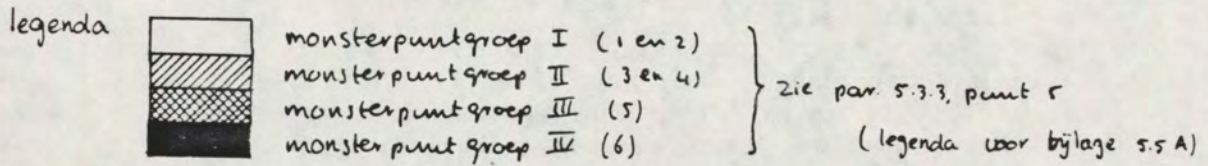 legenda
monsterpuntgroep I (1 en 2)
monsterpuntgroep II (3 en 4)
monsterpuntgroep III (5)
monsterpuntgroep IV (6)
zie par. 5.3.3, punt 5
(legenda voor bijlage 5.5 A)